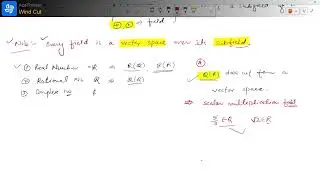 AppPresser
Wind Cut
→ field
subfield of
Note:- Every field is a vector space over its subfield.
① Real Number - R ⇒ R(Q), R(R)
② Rational No Q ⇒ Q(Q)
③ Complex No
Q(R) does not form a
vector space.
⇒ scalar multiplication fail
∈ Q √2 ∈ R